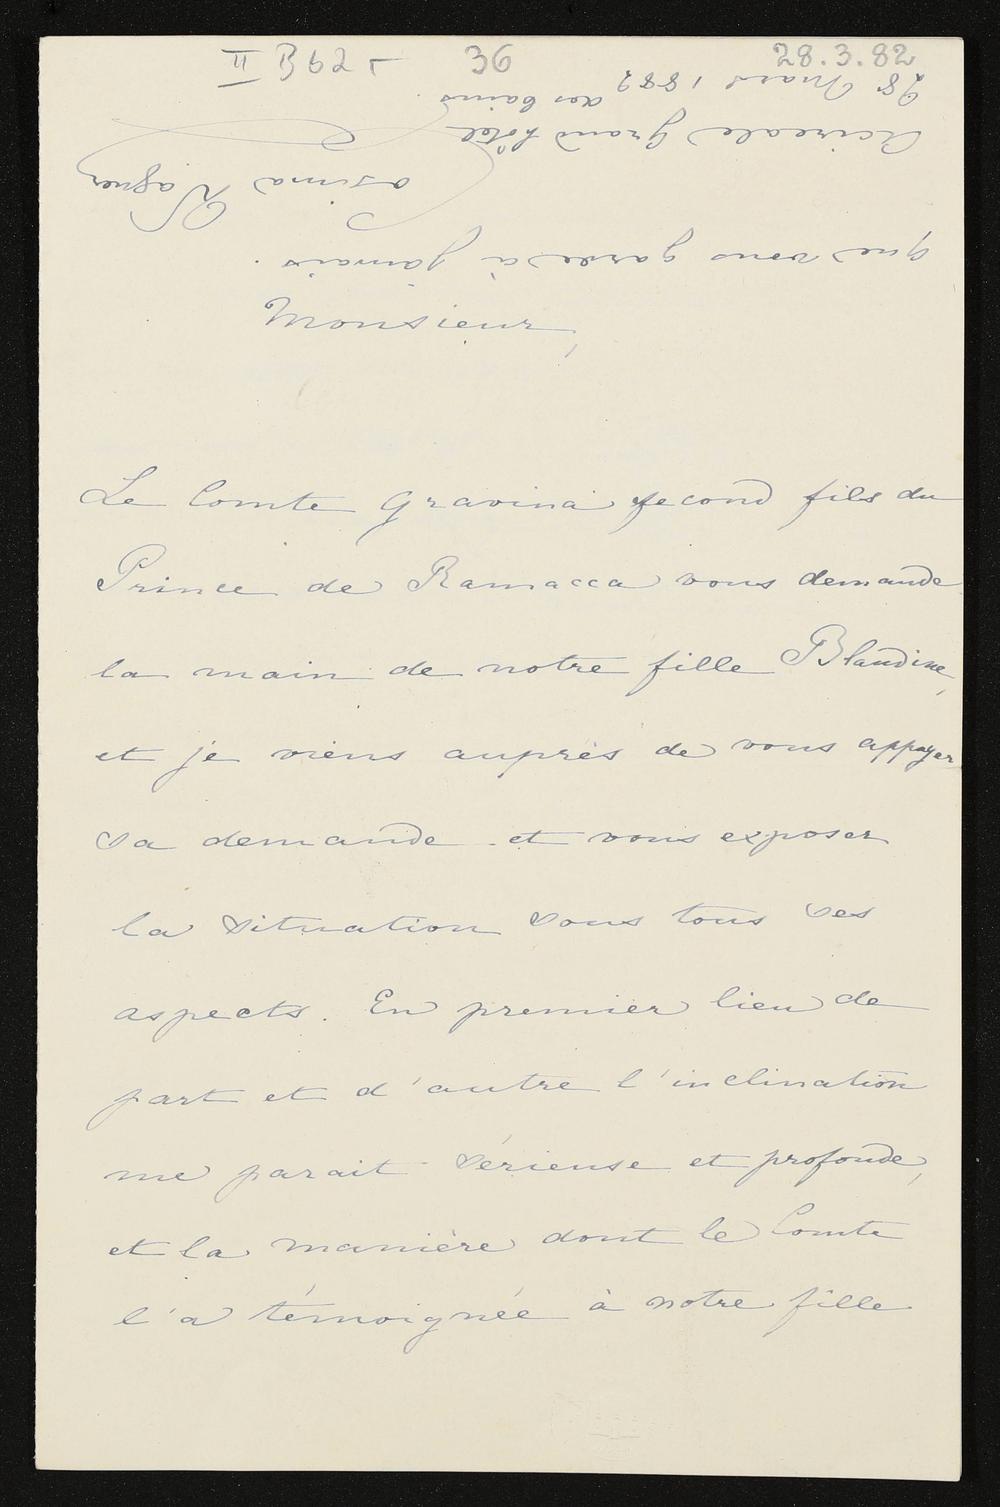 II B b 2 - 36 28.3.82
Monsieur,
Le Comte Gravina second fils du
Prince de Ramacca vous demande
la main de notre fille Blandine,
et je viens auprès de vous appuyer
sa demande et vous exposer
la situation sous tous ses
aspects. En premier lieu de
part et d'autre l'inclination
me parait sérieuse et profonde,
et la manière dont le Comte
l'a témoignée à notre fille
que vous garde à jamais.
Cosima Wagner
Acireale Grand hôtel
des bains
28 Mars 1882